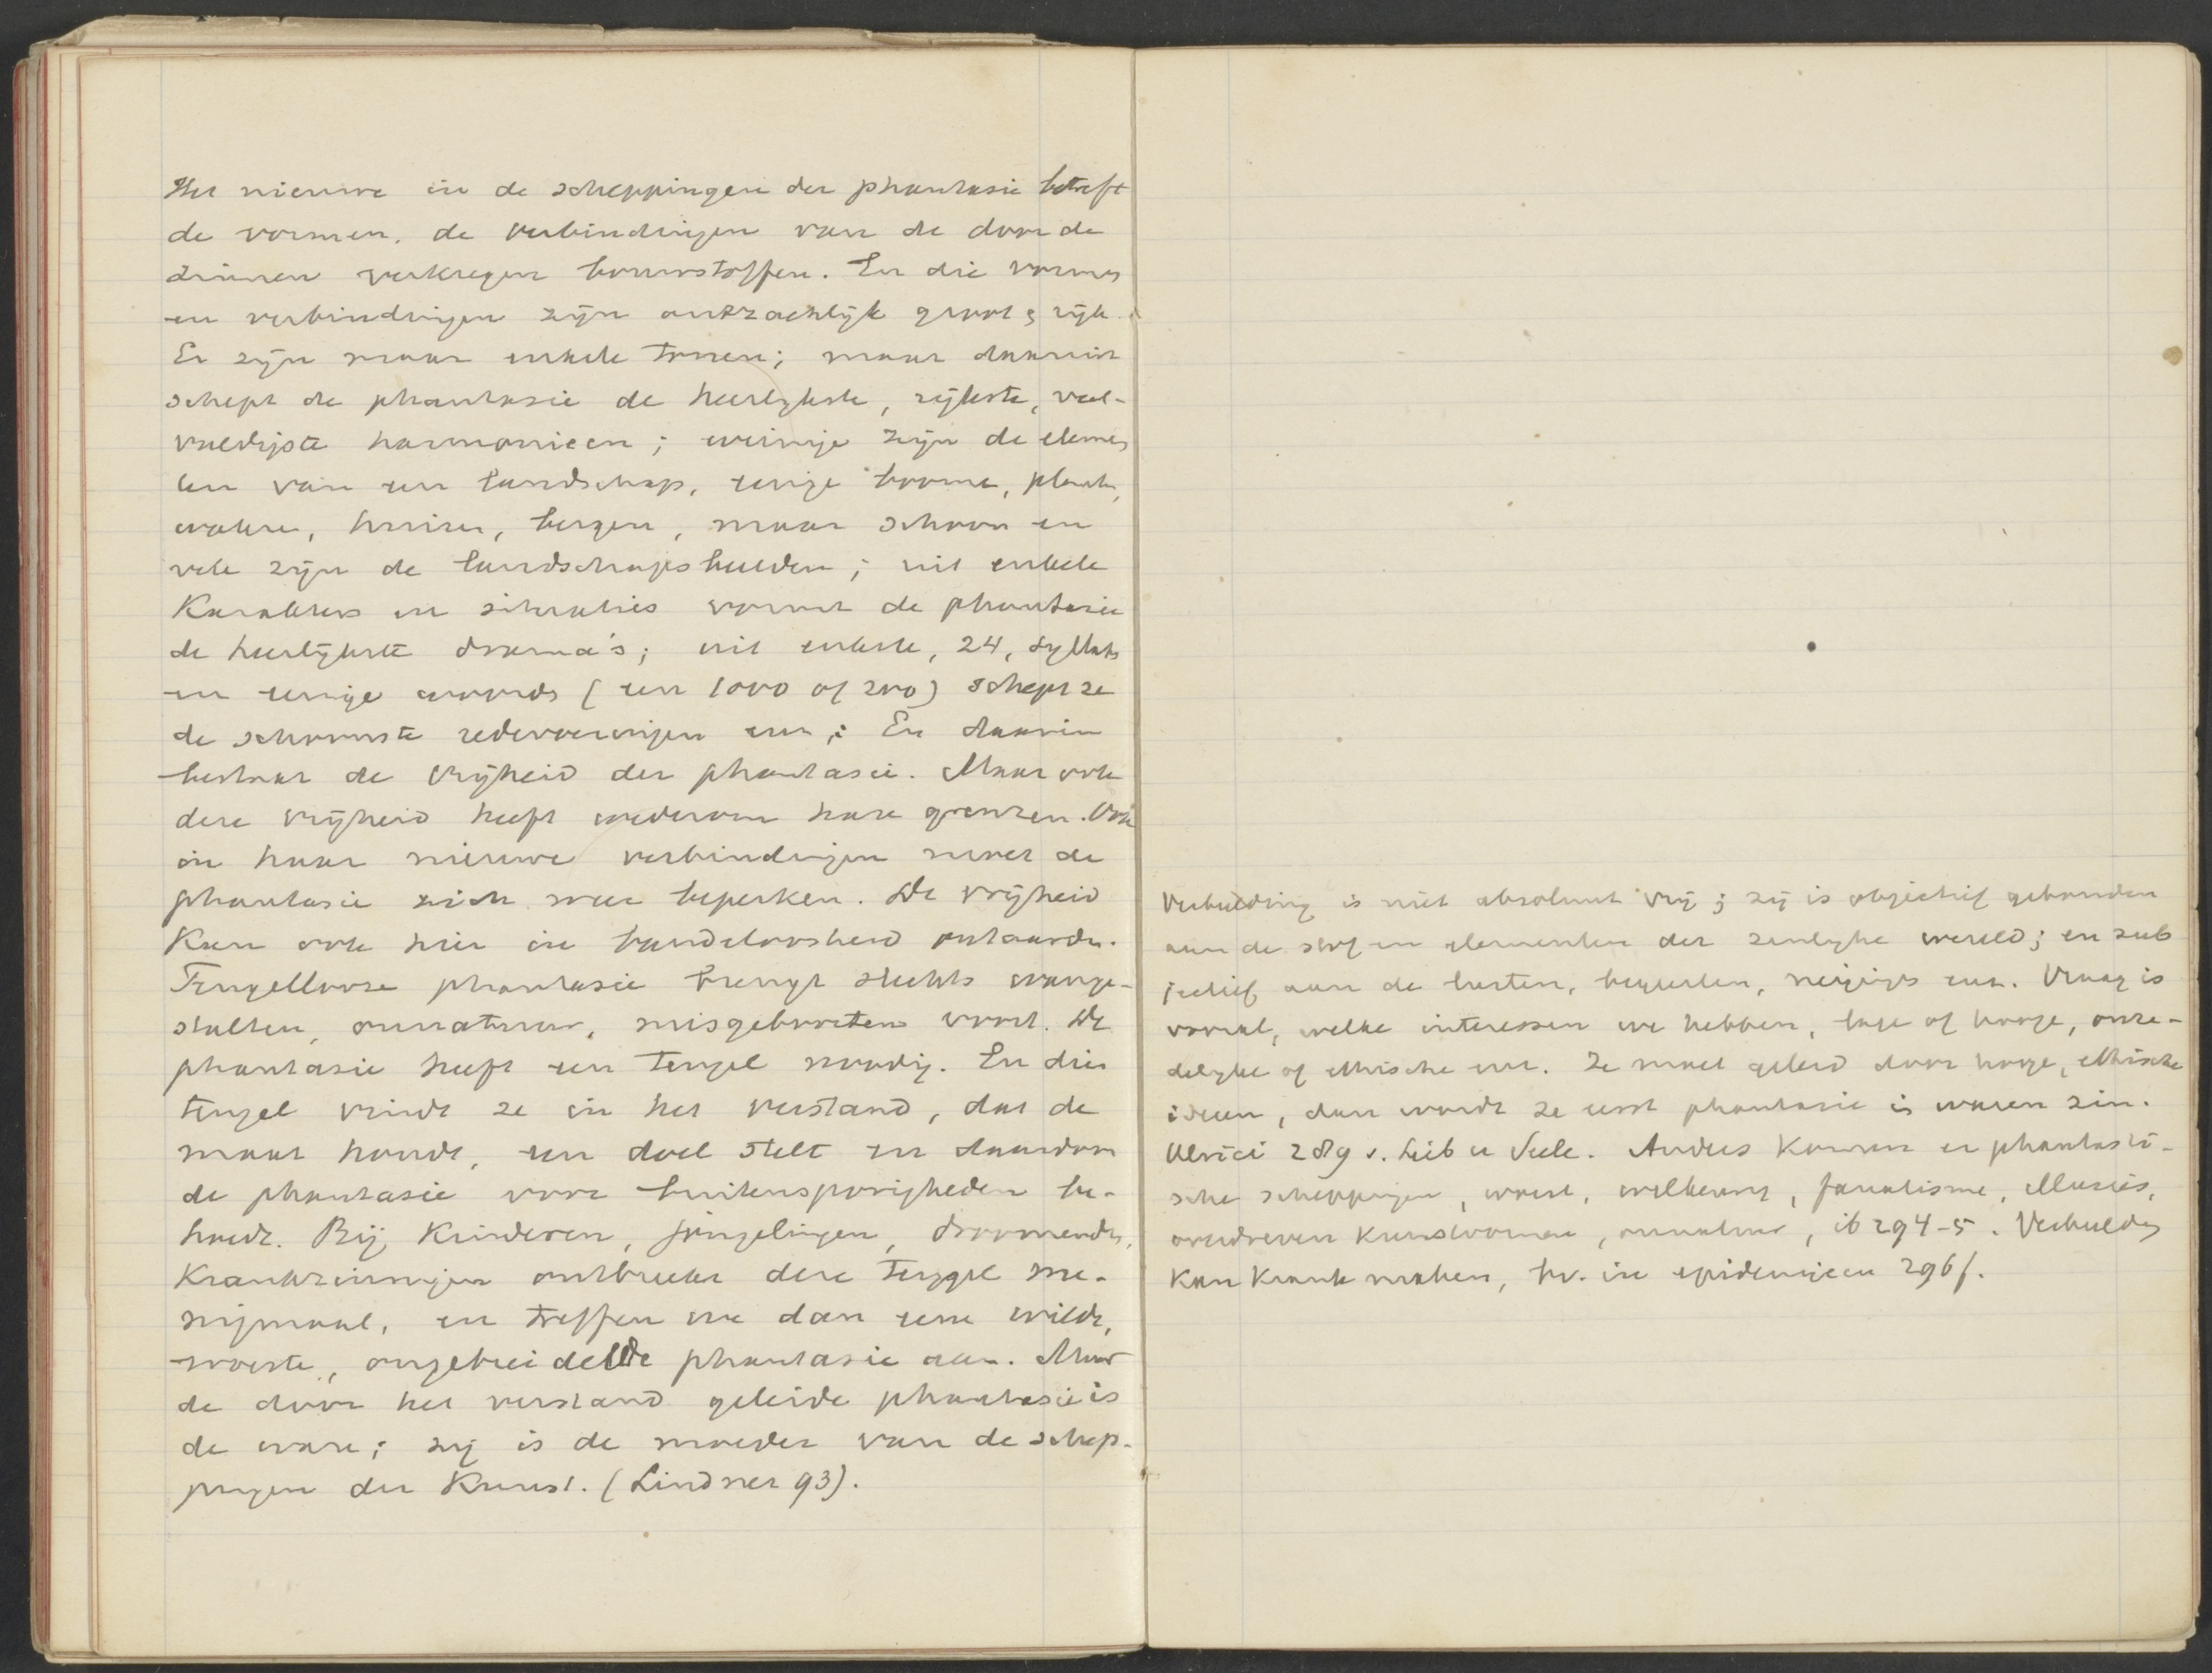 Het nieuwe in de scheppingen der phantasie betreft
de vormen, de verbindingen van de door de
zinnen verkregen bouwstoffen. En die vormen
en verbindingen zijn ontzachlijk groot & rijk.
Er zijn maar enkele tonen; maar daaruit
schept de phantasie de heerlijkste, rijkste, veel-
vuldigste harmonieen; weinige zijn de elemen
ten van een landschap, eenige boomen, planten,
water, huizen, bergen, maar schoon en
vele zijn de landschapsbeelden; uit enkele
Karakters en situaties vormt de phantasie
de heerlijkste drama's; uit enkele, 24, syllab
en eenige woorden (een 1000 of 200) schept ze
de schoonste redevoeringen enz; En daarin
bestaat de vrijheid der phantasie. Maar ook
deze vrijheid heeft wederom hare grenzen. Ook
in haar nieuwe verbindingen moet de
phantasie zich weer beperken. De vrijheid
Kan ook hier in bandeloosheid ontaarden.
Teugellooze phantasie brengt slechts wange-
stalten, onnatuur, misgeboorten voort. De
phantasie heeft een teugel noodig. En dien
teugel vindt ze in het verstand, dat de
maat houdt, een doel stelt en daardoor
de phantasie voor buitensporigheden be-
hoedt. Bij Kinderen, jongelingen, droomenden,
Krankzinnigen ontbreekt deze teugel me-
nigmaal, en treffen we dan eene wilde,
woeste, ongebreidelde phantasie aan. Maar
de door het verstand geleide phantasie is
de ware; zij is de moeder van de schep-
pingen der Kunst. (Lindner 93).
Verbeelding is niet absoluut vrij; zij is objectief gebonden
aan de stof en elementen der zinlijke wereld; en sub
jectief aan de lusten, begeerten, neigingen enz. Vraag is
vooral, welke interessen we hebben, lage of hooge, onze-
delijke of ethische enz. Ze moet geleid door hooge, ethische
ideeen, dan wordt ze eerst phantasie in waren zin.
Ulrici 289 v. Leib u Seele. Anders komen er phantasti-
sche scheppingen, woest, willekeurig, fanatisme, illusies,
overdreven Kunstvormen, onnatuur, ib 294-5. Verbeelding
Kan Krank maken, bv. in epidemieen 296f.